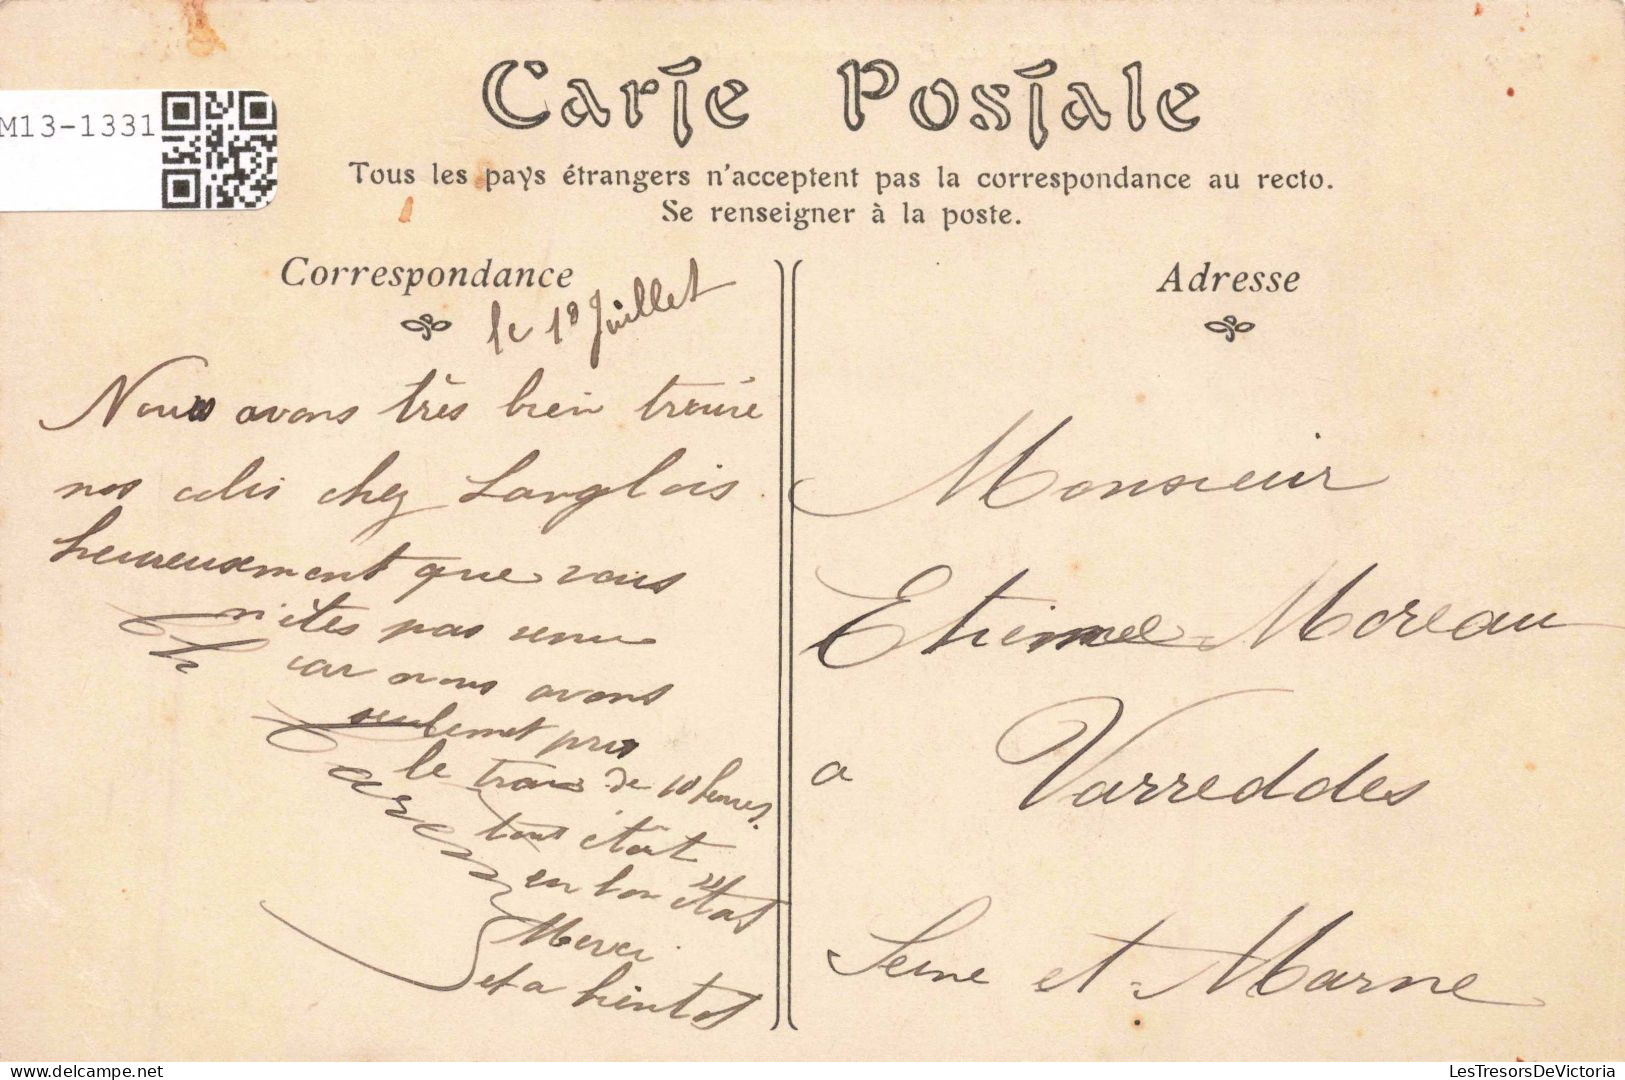 M13-1331
Carte Postale
Tous les pays étrangers n'acceptent pas la correspondance au recto.
Se renseigner à la poste.
Correspondance
le 18 Juillet
Nous avons très bien trouvé
nos colis chez Langlois
heureusement que vous
n'êtes pas venu
car nous avons
seulemet pris
le train de 10 heures.
tout était
en bon état
Merci
et a bientot
Adresse
Monsieur
Etienne Moreau
a Varreddes
Seine et Marne
delcampe.net
LesTresorsDeVictoria